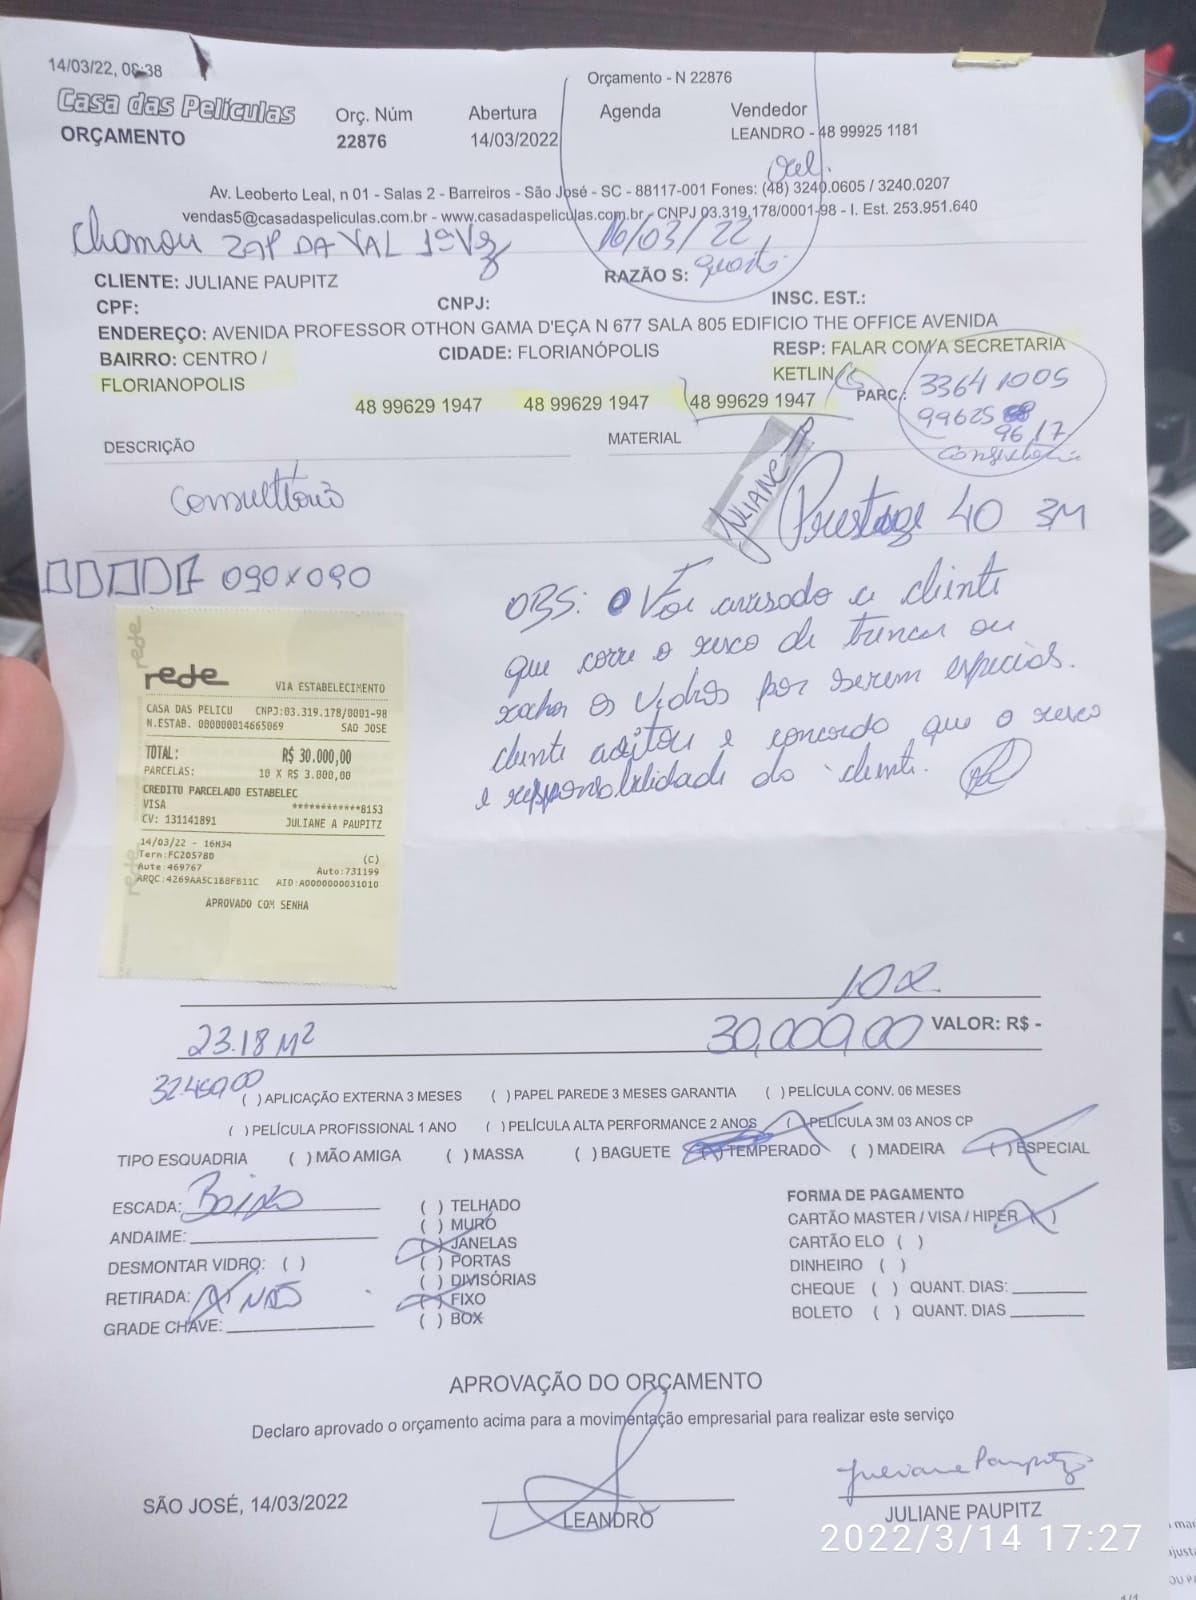 14/03/22, 08:38
Orçamento - N 22876
Casa das Películas
ORÇAMENTO
Orç. Núm
22876
Abertura
14/03/2022
Agenda
Vendedor
LEANDRO - 48 99925 1181
Av. Leoberto Leal, n 01 - Salas 2 - Barreiros - São José - SC - 88117-001 Fones: (48) 3240.0605 / 3240.0207
vendas5@casadaspeliculas.com.br - www.casadaspeliculas.com.br - CNPJ 03.319.178/0001-98 - I. Est. 253.951.640
Chamou ZAP DA VAL 1ª Vez
16/03/22
quarta
CLIENTE: JULIANE PAUPITZ
RAZÃO S:
CPF:
CNPJ:
INSC. EST.:
ENDEREÇO: AVENIDA PROFESSOR OTHON GAMA D'EÇA N 677 SALA 805 EDIFICIO THE OFFICE AVENIDA
BAIRRO: CENTRO /
FLORIANOPOLIS
CIDADE: FLORIANÓPOLIS
RESP: FALAR COM A SECRETARIA
KETLIN
48 99629 1947
48 99629 1947
48 99629 1947
PARC.:
3364 1005
99625
9617
Consultório
DESCRIÇÃO
MATERIAL
JULIANE
Consultório
Prestige 40 3M
090x090
OBS: Foi avisado a cliente
que corre o risco de trincar ou
rachar os vidros por serem especiais.
cliente aceitou e concordo que o risco
e responsabilidade do cliente.
rede
VIA ESTABELECIMENTO
CASA DAS PELICU CNPJ:03.319.178/0001-98
N.ESTAB. 000000014665069 SAO JOSE
TOTAL: R$ 30.000,00
PARCELAS: 10 X R$ 3.000,00
CREDITO PARCELADO ESTABELEC
VISA ************8153
CV: 131141891 JULIANE A PAUPITZ
14/03/22 - 16H34
Term:FC205780 (C)
Aute:469767 Auto:731199
ARQC:4269AA5C1B8FB11C AID:A0000000031010
APROVADO COM SENHA
10x
23.18 M²
30,000,00 VALOR: R$ -
( ) APLICAÇÃO EXTERNA 3 MESES ( ) PAPEL PAREDE 3 MESES GARANTIA ( ) PELÍCULA CONV. 06 MESES
( ) PELÍCULA PROFISSIONAL 1 ANO ( ) PELÍCULA ALTA PERFORMANCE 2 ANOS ( ) PELÍCULA 3M 03 ANOS CP
TIPO ESQUADRIA ( ) MÃO AMIGA ( ) MASSA ( ) BAGUETE ( ) TEMPERADO ( ) MADEIRA ( ) ESPECIAL
ESCADA: Baixo
ANDAIME:
DESMONTAR VIDRO: ( )
RETIRADA: NÃO
GRADE CHAVE:
( ) TELHADO
( ) MURO
( ) JANELAS
( ) PORTAS
( ) DIVISÓRIAS
( ) FIXO
( ) BOX
FORMA DE PAGAMENTO
CARTÃO MASTER / VISA / HIPER ( )
CARTÃO ELO ( )
DINHEIRO ( )
CHEQUE ( ) QUANT. DIAS:
BOLETO ( ) QUANT. DIAS
APROVAÇÃO DO ORÇAMENTO
Declaro aprovado o orçamento acima para a movimentação empresarial para realizar este serviço
SÃO JOSÉ, 14/03/2022
LEANDRO
Juliane Paupitz
JULIANE PAUPITZ
2022/3/14 17:27
1/1